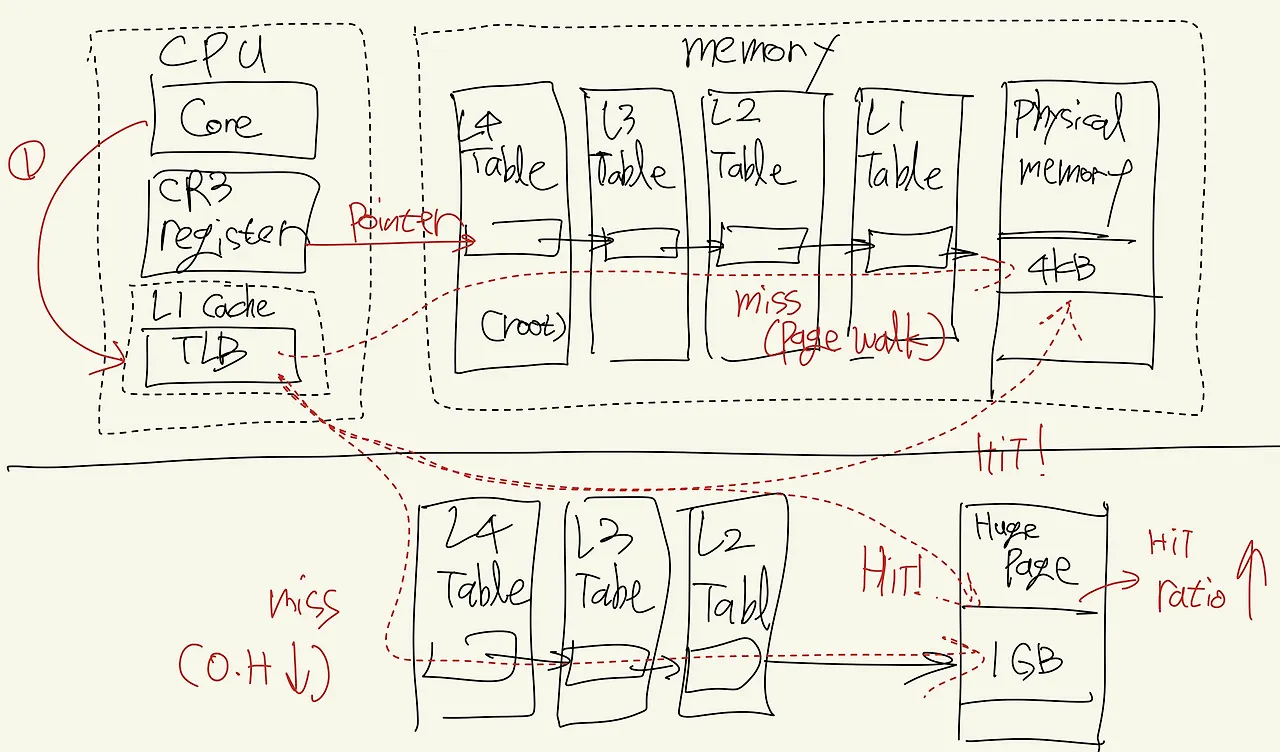 CPU
Core
①
CR3
register
Pointer
L1 Cache
TLB
memory
L4
Table
(root)
L3
Table
L2
Table
L1
Table
miss
(Page walk)
Physical
memory
4kB
HiT!
L4
Table
L3
Tabe
L2
Tabl
miss
(O.H ↓)
HiT!
Huge
Page
1GB
HiT
ratio ↑